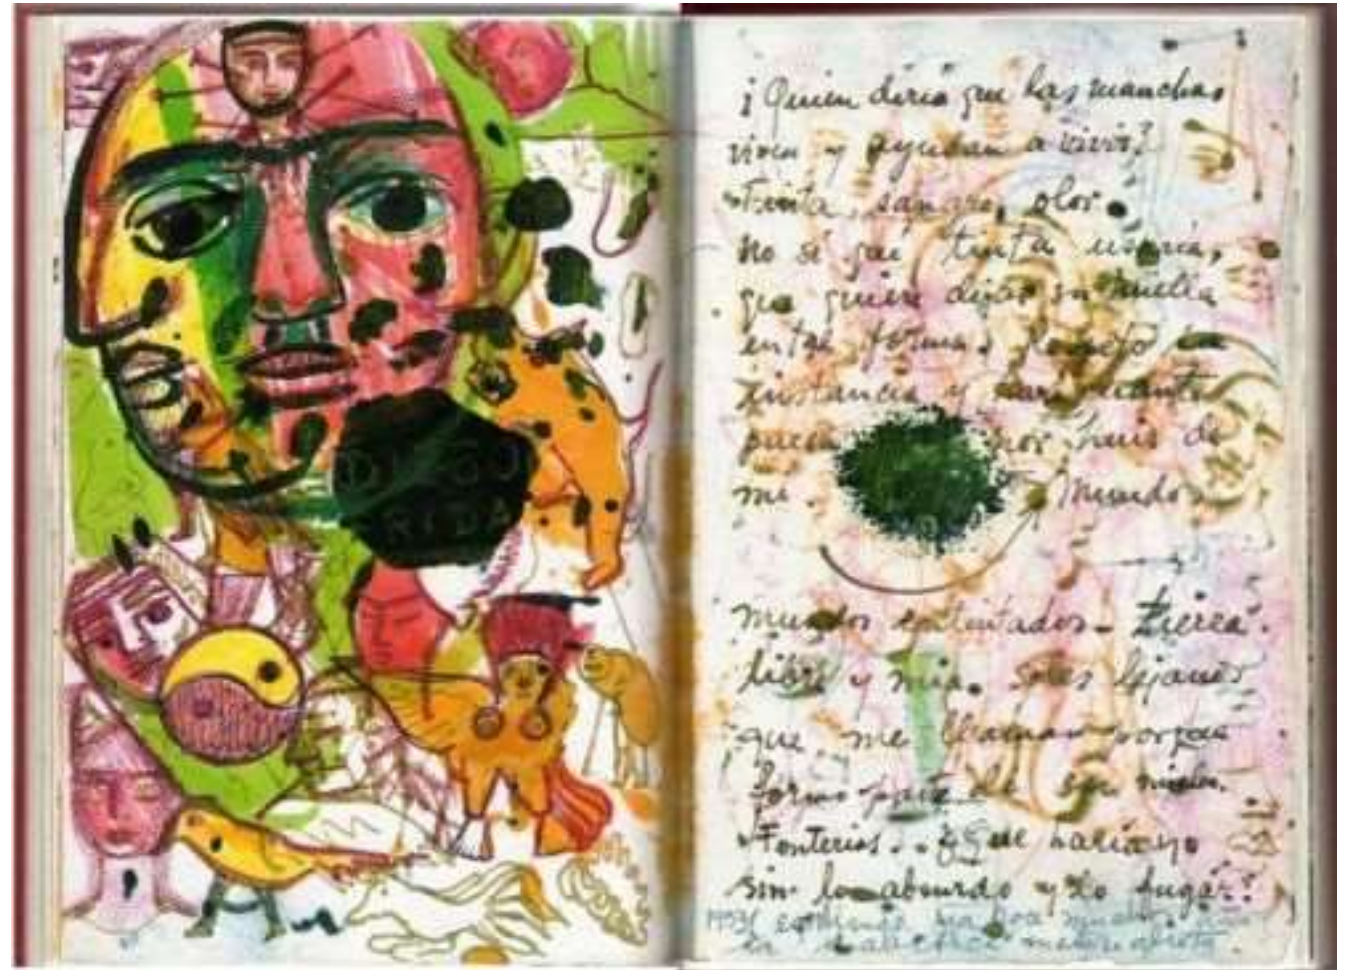 DIEGO
FRIDA
¿Quien diria que las manchas
viven y ayudan a vivir?
Tinta, sangre, olor.
No sé qué tinta usaría,
que quiere dejar su huella
en tal forma. Respeto su
instancia y haré cuanto
pueda por huir de
mi Mundo.
mundos entintados - tierra
libre y mia. Soles lejanos
que me llaman porque
formo parte de su nucleo.
Tonterias.. ¿Que haría yo
sin lo absurdo y lo fugáz?
1953 entiendo ya hoa muchos
la dialectica materialista.